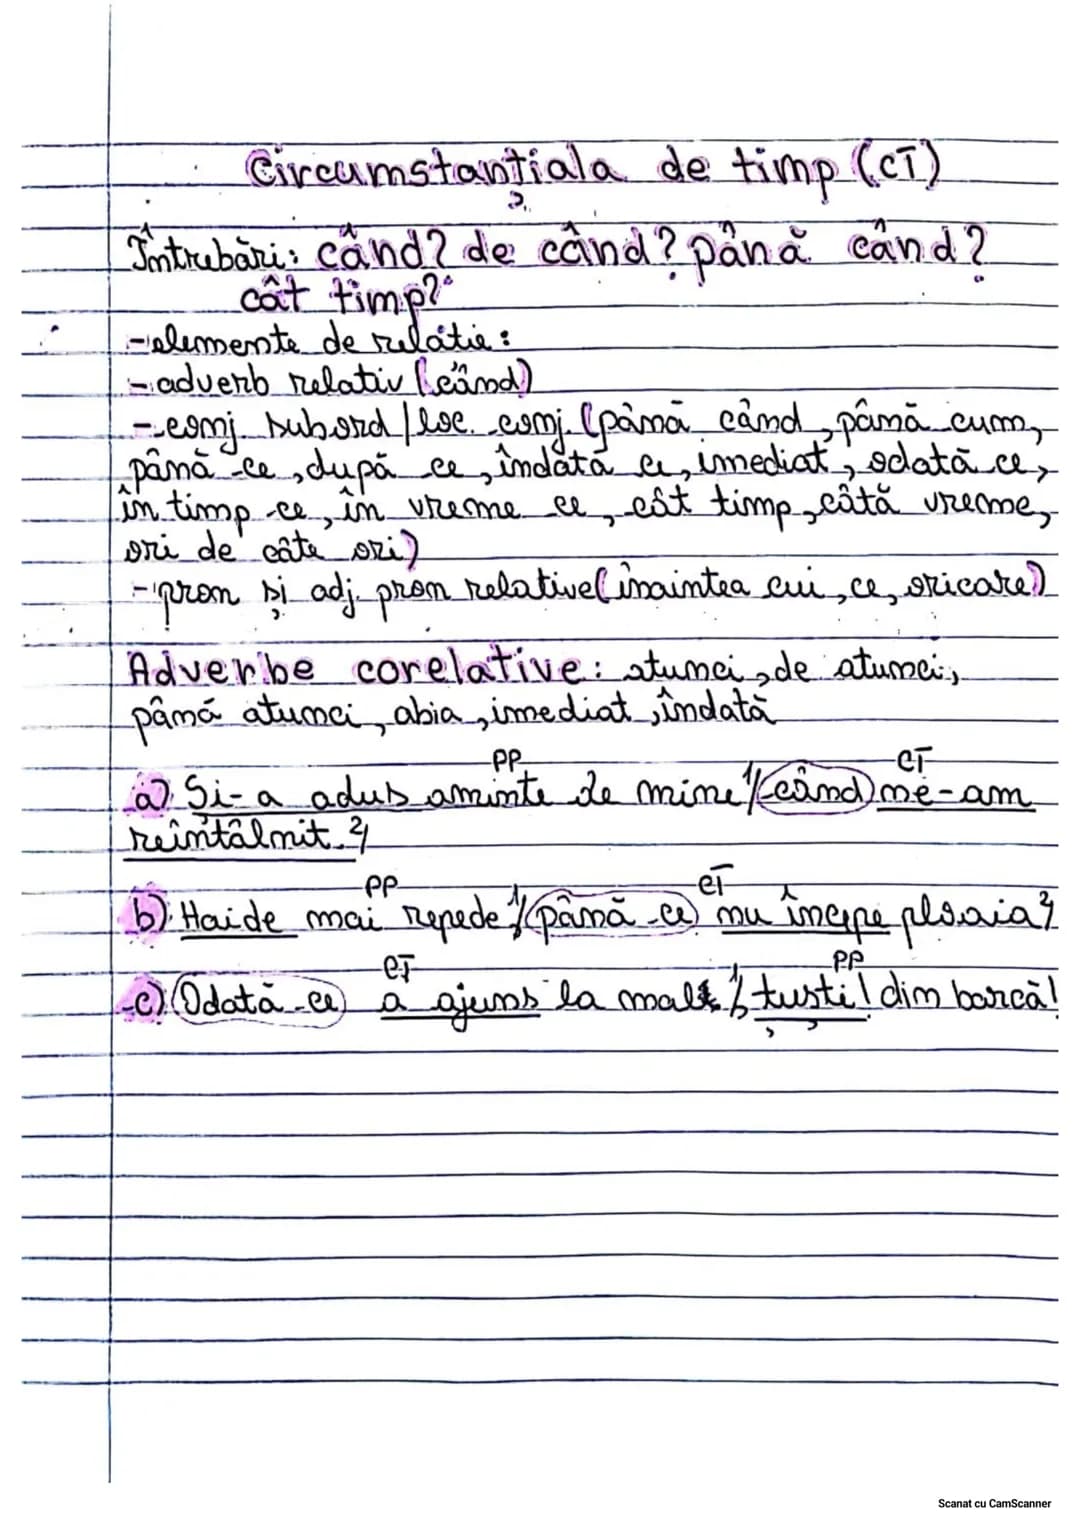 Circumstanțiala de timp (CT)
Întrebări: când? de când? până când?
cât timp?
-elemente de relație:
- adverb relativ (când)
- conj. subord / loc. conj. (până când, până cum,
până ce, după ce, îndată ce, imediat, odată ce,
în timp ce, în vreme ce, cât timp, câtă vreme,
ori de câte ori)
- pron și adj. pron relative (înaintea cui, ce, oricare)
Adverbe corelative: atunci, de atunci,
până atunci, abia, imediat, îndată
PP CT
a) Și-a adus aminte de mine 1/ când ne-am
reîntâlnit. 2/
PP CT
b) Haide mai repede 1/ până ce nu începe ploaia 2/
CT PP
c) Odată ce a ajuns la mal 1/ țuști! din barcă!
Scanat cu CamScanner